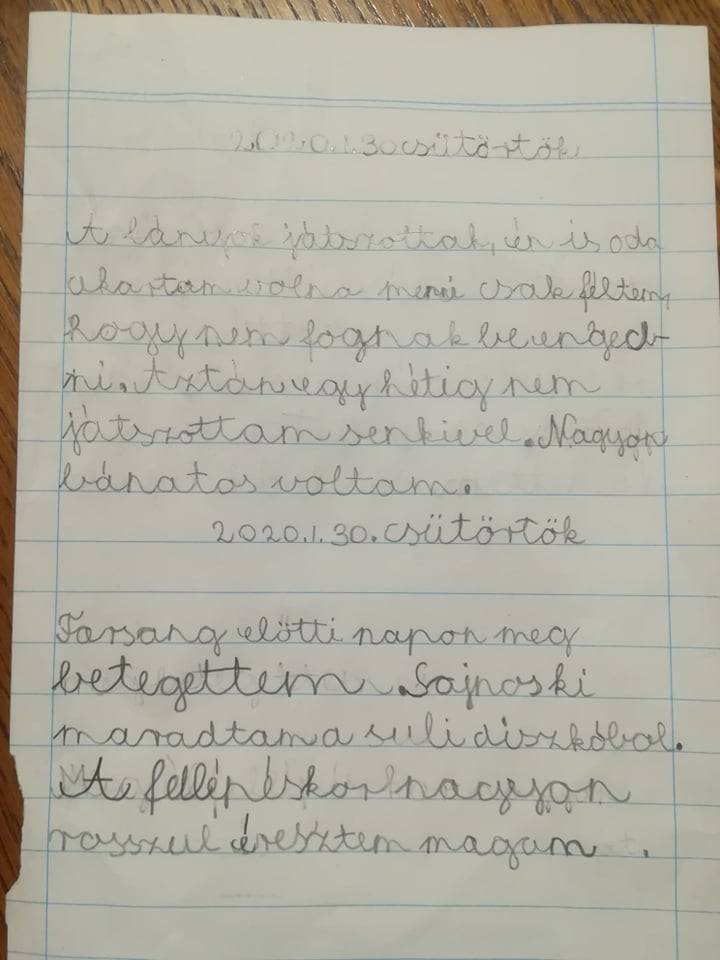 2020.1.30.csütörtök
A lányok játszottak, én is oda
akartam volna menni csak féltem,
hogy nem fognak beenged-
ni. Aztán egy hétig nem
játszottam senkivel. Nagyon
bánatos voltam.
2020.1.30. csütörtök
Farsang elötti napon meg
betegettem. Sajnos ki
maradtam a suli diszkóbol.
A fellépéskor nagyon
rosszul éresztem magam .